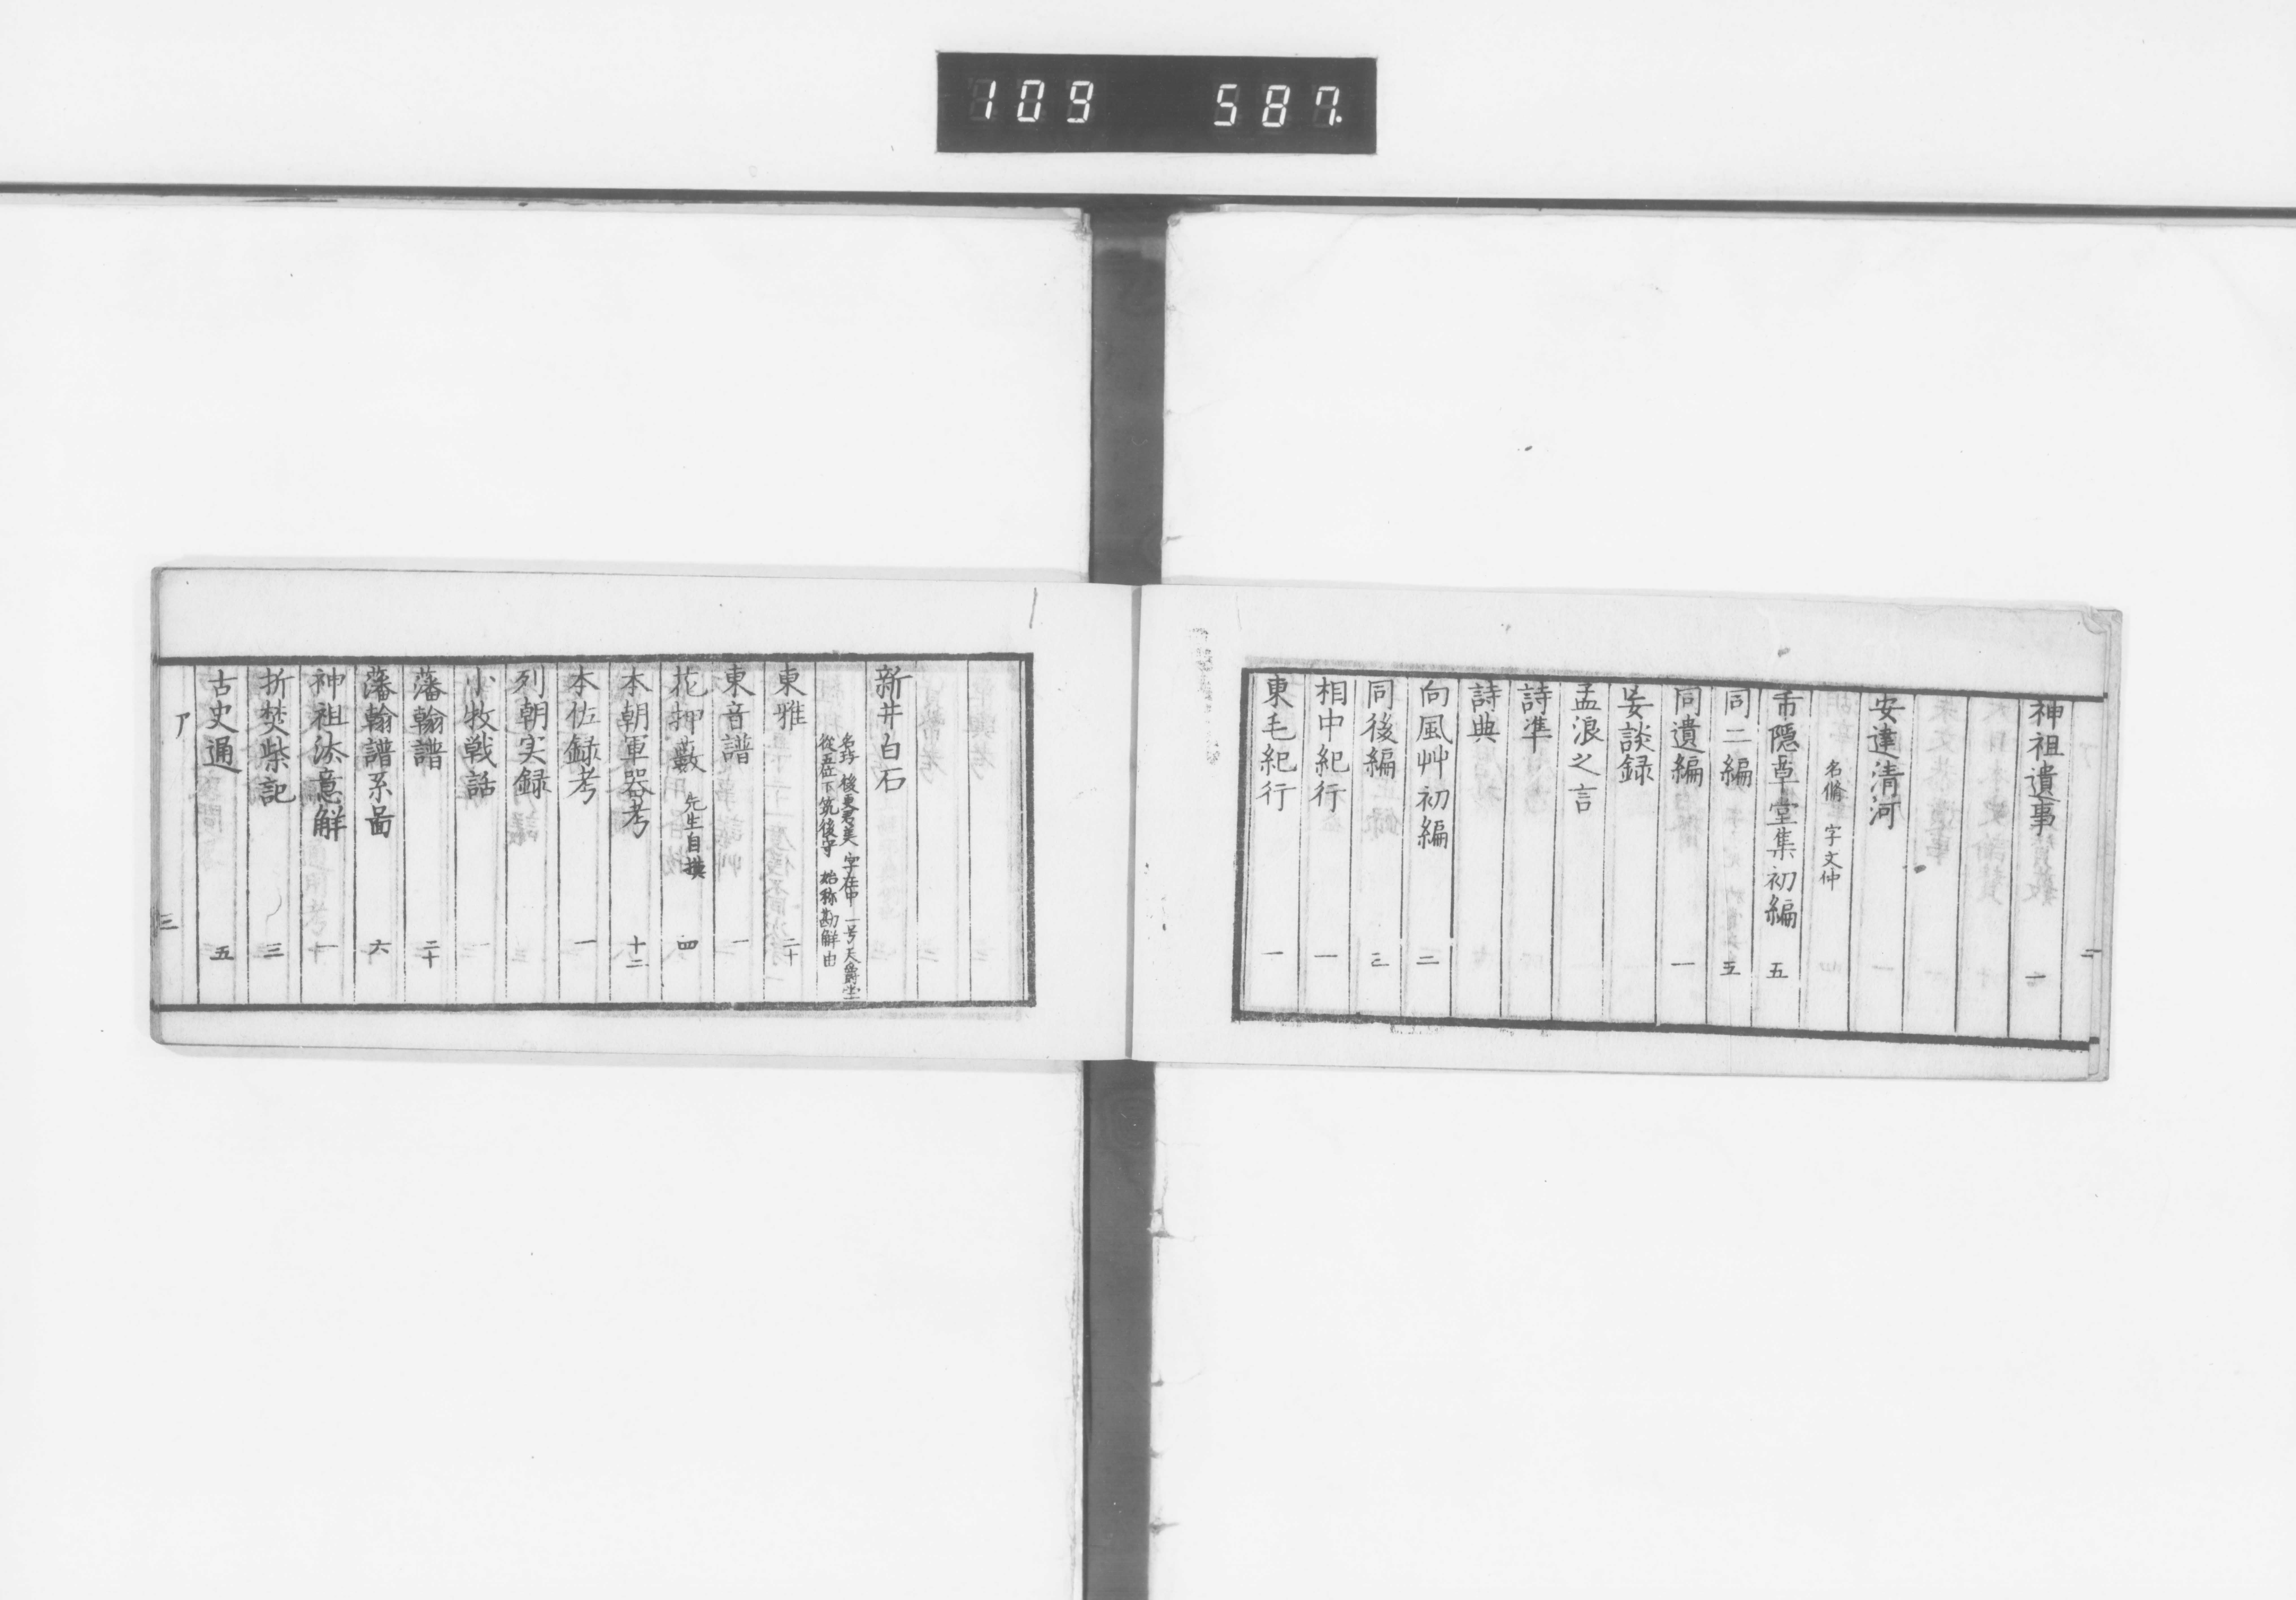 109 587.
二
神祖遺事 一
安達清河
名脩 字文仲
市隠草堂集初編 五
同二編 五
同遺編 一
妄談録
孟浪之言
詩準
詩典
向風艸初編 二
同後編 三
相中紀行 一
東毛紀行 一
新井白石
名璵 後更君美 字在中 一号天爵堂
從五位下筑後守 始称勘解由
東雅 二十
東音譜 一
花押藪 先生自撰 四
本朝軍器考 十二
本佐録考 一
列朝実録
小牧戦話
藩翰譜 二十
藩翰譜系畐 六
神祖法意解 一
折焚柴記 三
古史通 五
ア 三